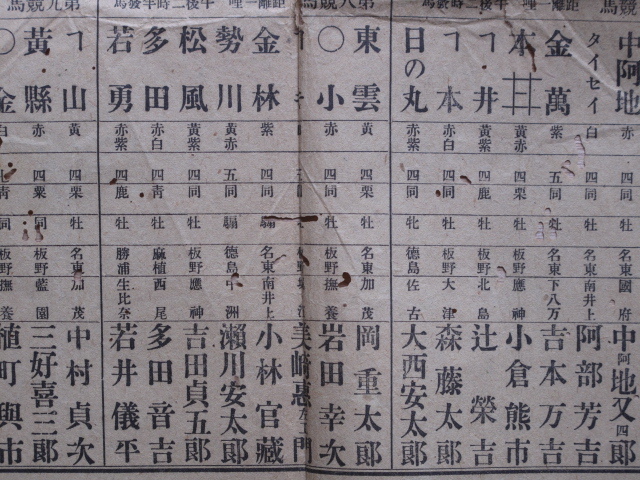 中阿地 赤 四同 牡 名東國府 中阿地又四郎
タイセイ 白 四同 牡 名東南井上 阿部芳吉
金萬 紫 五同 牡 名東下八万 吉本万吉
本井 黄赤 四同 牡 板野應神 小倉熊市
㇕井 黄紫 四鹿 牡 板野北島 辻榮吉
㇕本 赤 四同 牡 板野大津 森藤太郎
日の丸 赤紫 四同 牝 德島佐古 大西安太郎
東雲 黄 四栗 牡 名東加茂 岡重太郎
〇小 赤 四同 牡 板野撫養 岩田幸次
美崎惠左門
金林 紫 四同 騸 名東南井上 小林官藏
勢川 黄赤 五同 騸 德島中洲 瀨川安太郎
松風 黄紫 四同 牡 板野應神 吉田貞五郎
多田 赤白 四青 牡 麻植西尾 多田音吉
若勇 赤紫 四鹿 牡 勝浦生比奈 若井儀平
㇕山 黄 四栗 牡 名東加茂 中村貞次
黃縣 赤 四栗 同 板野藍園 三好喜三郎
〇金 白 青 同 板野撫養 植町與市